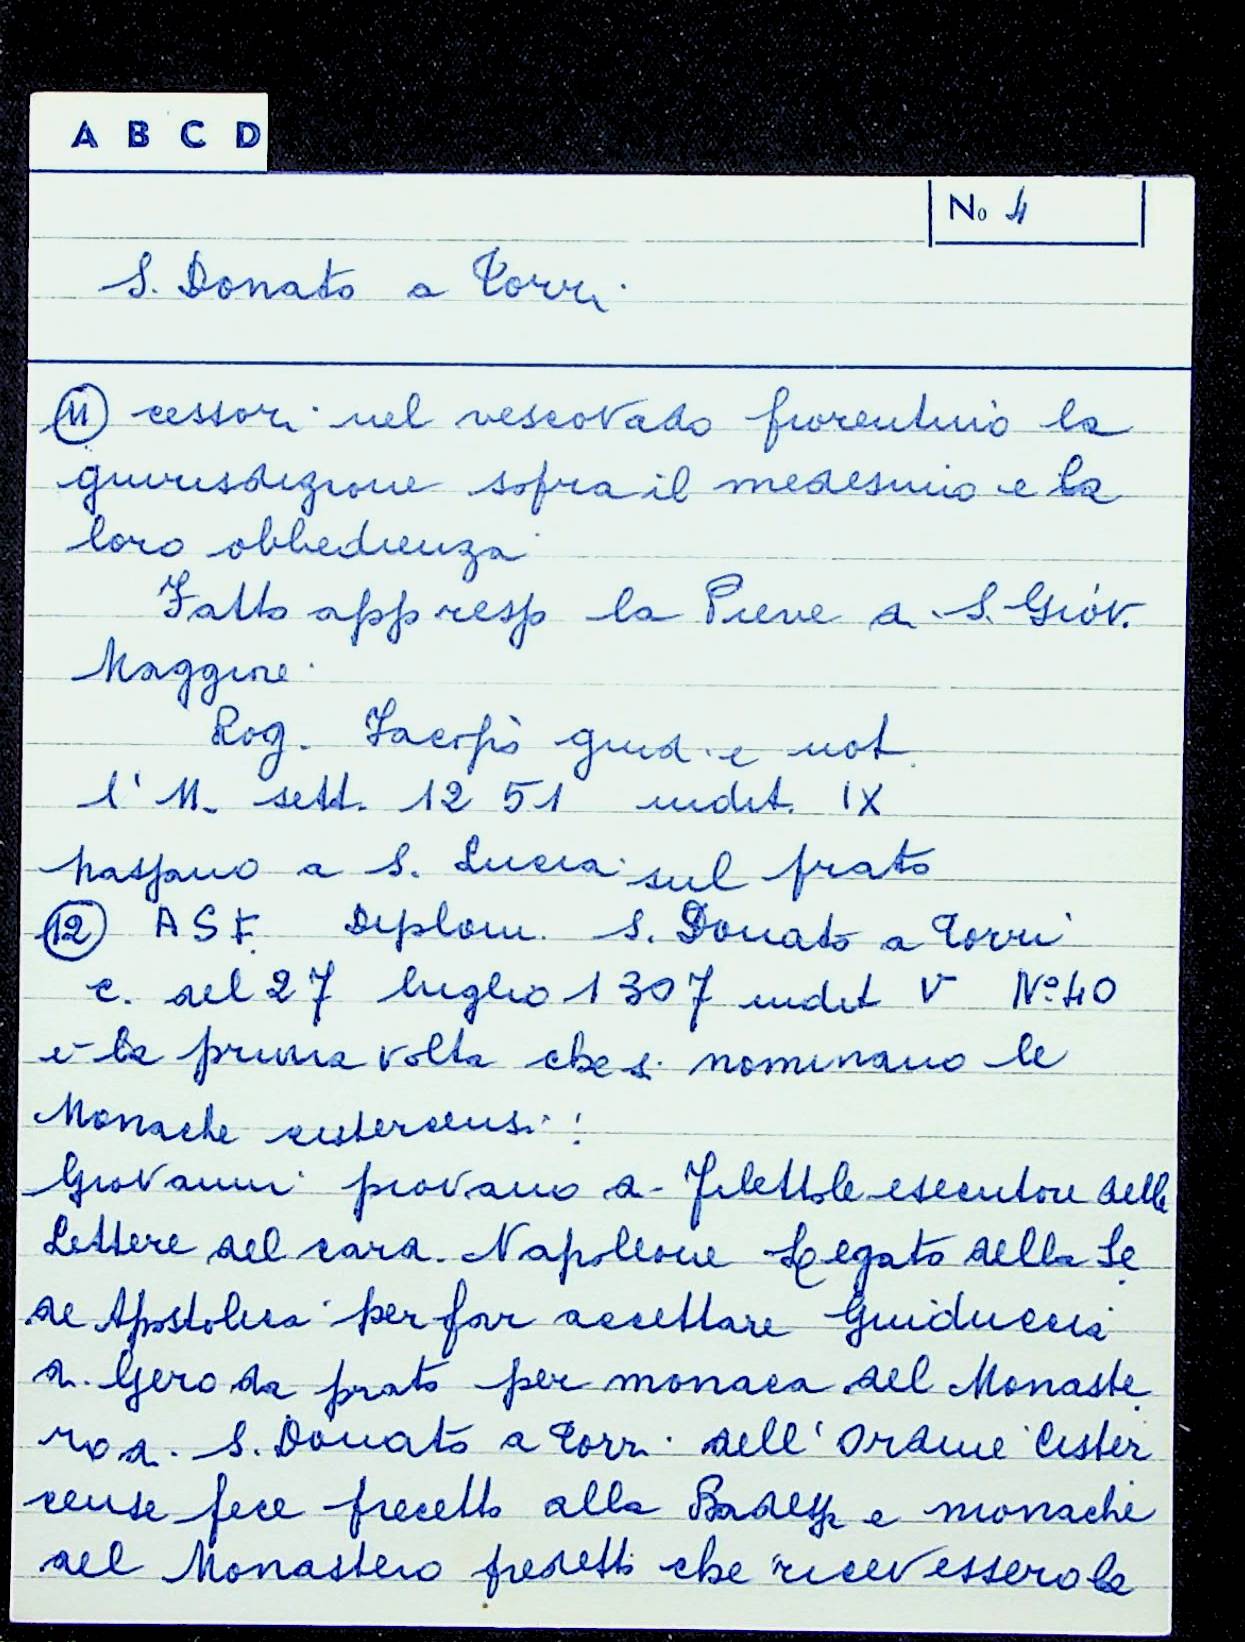 A B C D
No 4
S. Donato a Torri
11 cessori nel vescovado fiorentino la
giurisdizione sopra il medesimo e la
loro obbedienza
Fatto appresso la Pieve di S. Giov.
Maggiore.
Rog. Jacopo giud. e not.
l'11. sett. 1251 indit. IX
passano a S. Lucia sul prato
12 ASF. Diplom. S. Donato a Torri
c. del 27 luglio 1307 indit V No 40
è la prima volta che si nominano le
Monache cistercensi!
Giovanni piovano di Filettole esecutore delle
Lettere del card. Napoleone Legato della Se
de Apostolica per far accettare Guiduccia
di Gero da prato per monaca del Monaste
ro di S. Donato a Torri dell'Ordine Cister
cense fece precetto alla Badessa e monache
del Monastero predetto che ricevessero la